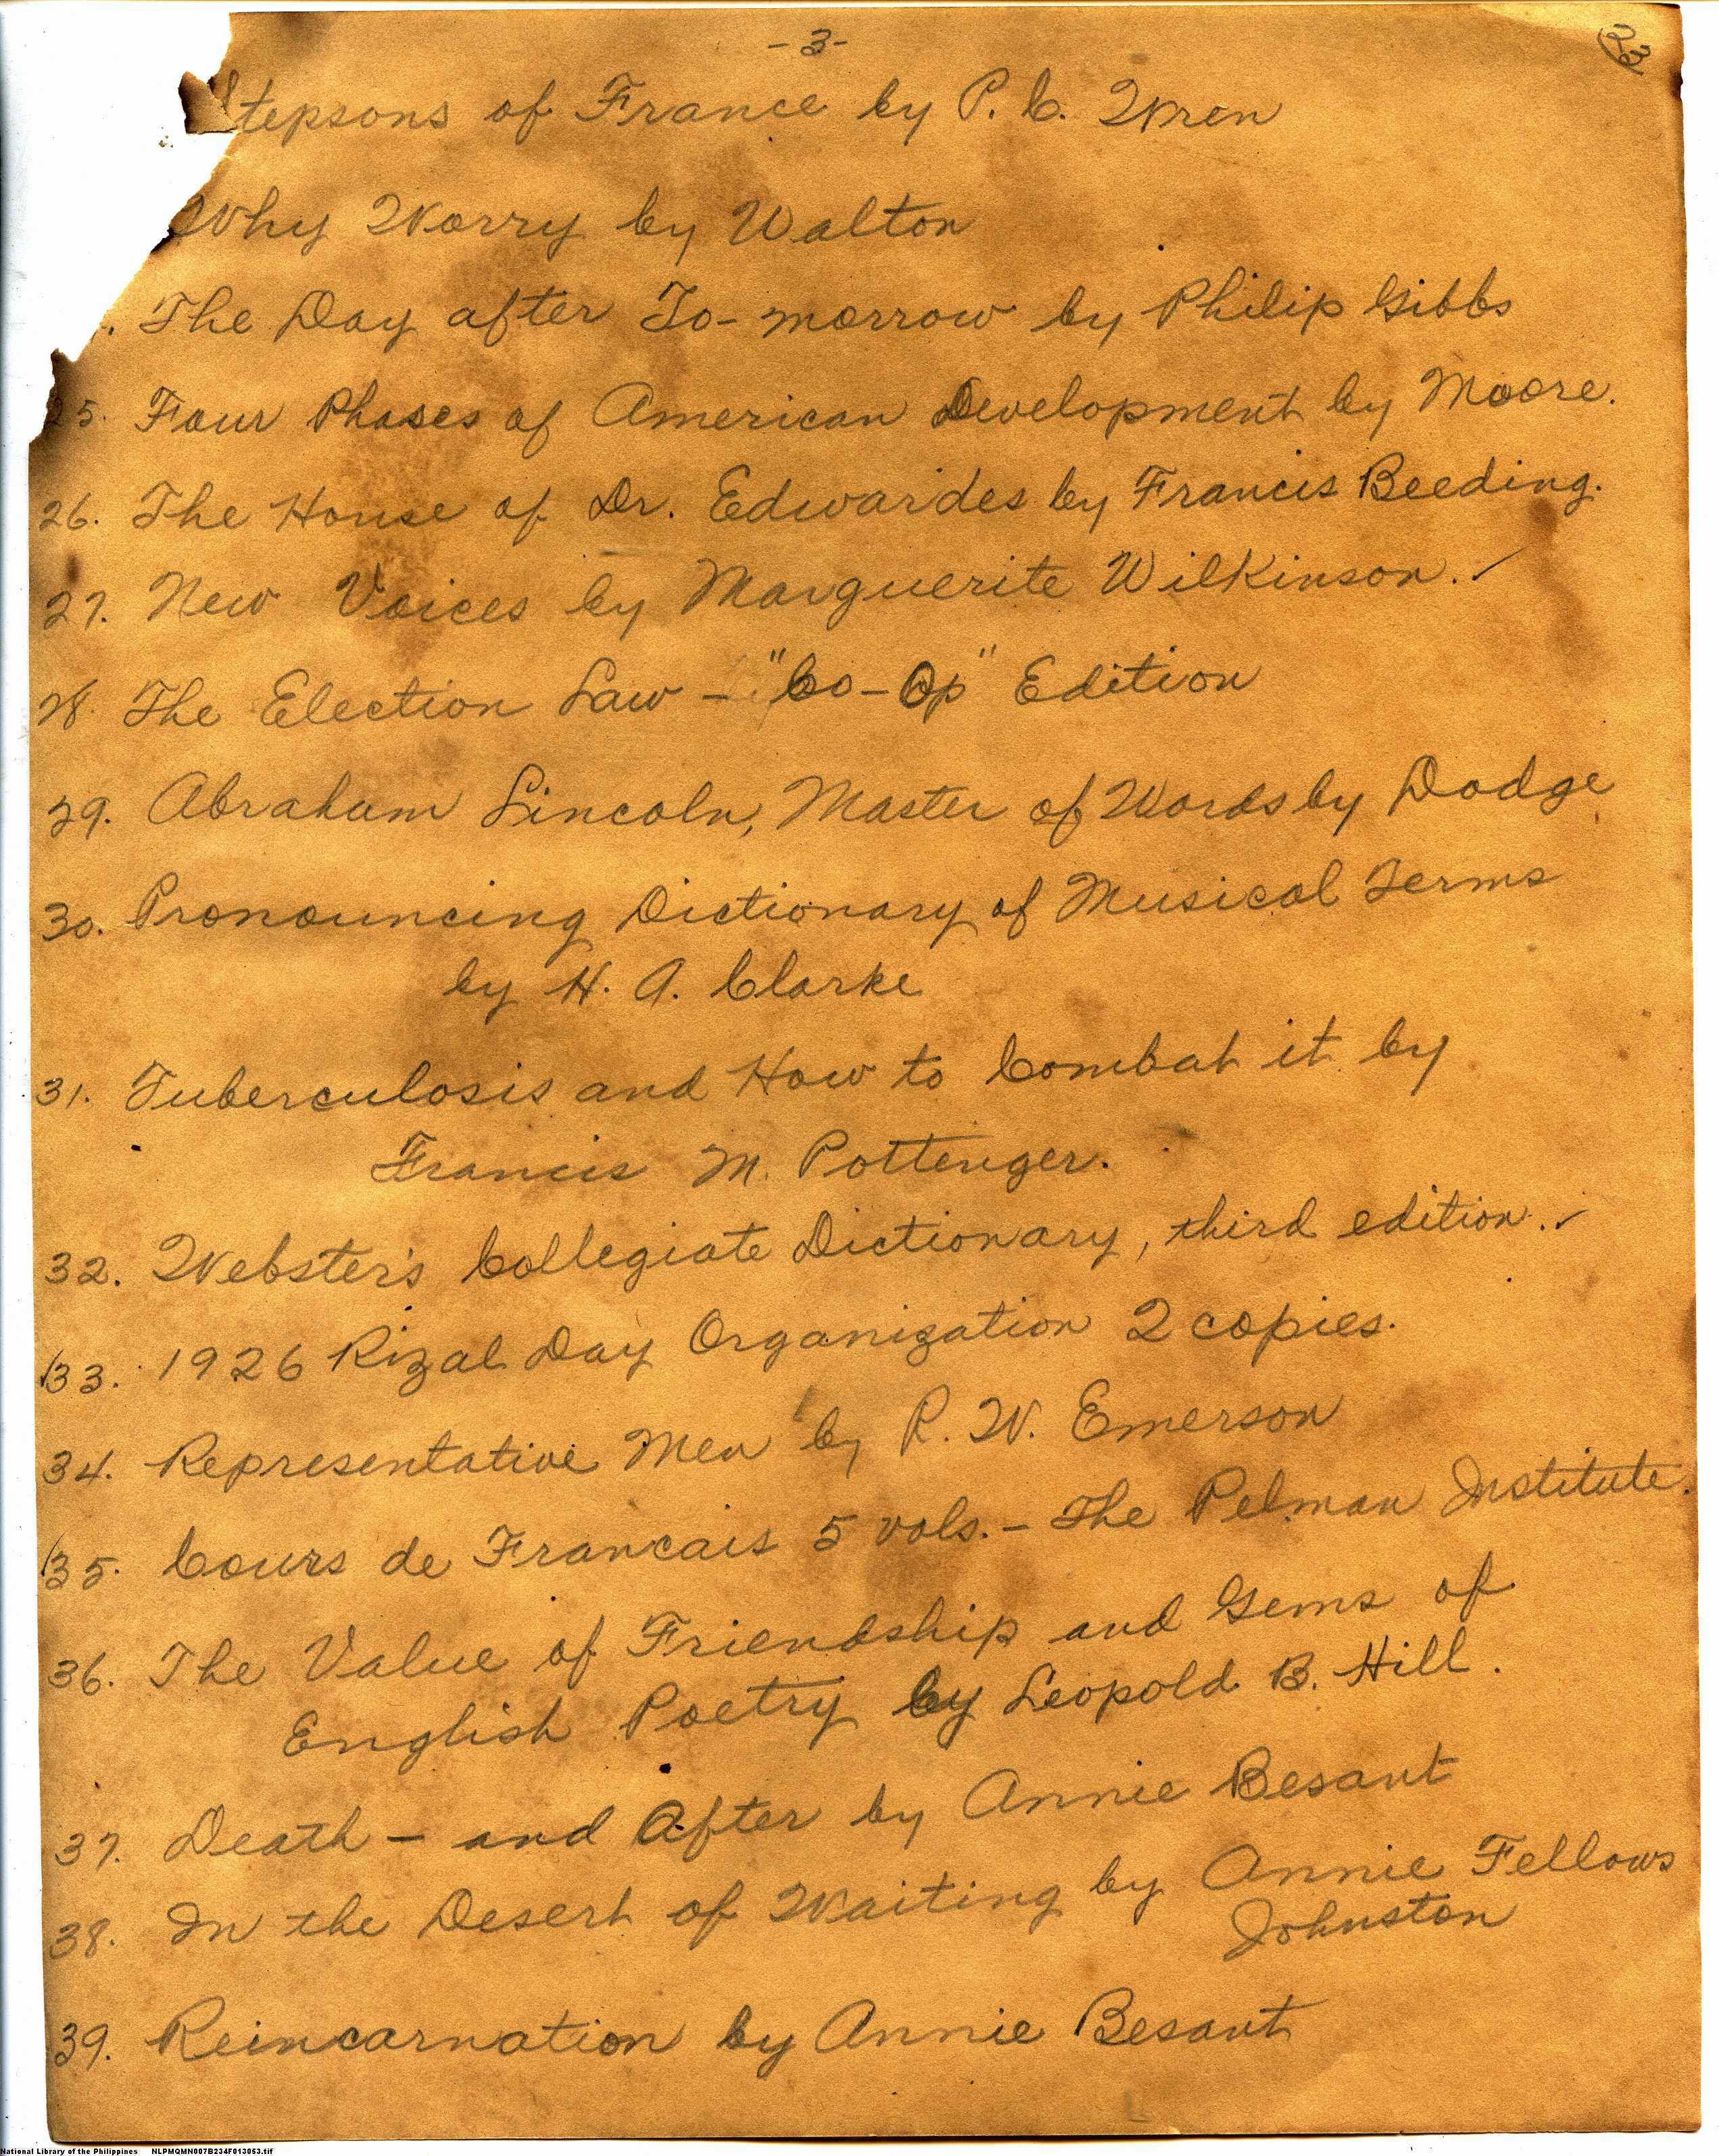 -3-
23
Stepsons of France by P. C. Wren
Why Worry by Walton
. The Day after To-morrow by Philip Gibbs
25. Four Phases of American Development by Moore.
26. The House of Dr. Edwardes by Francis Beeding.
27. New Voices by Marguerite Wilkinson. ✓
28. The Election Law - "Co-Op" Edition
29. Abraham Lincoln, Master of Words by Dodge
30. Pronouncing Dictionary of Musical Terms
by H. A. Clarke
31. Tuberculosis and How to Combat it by
Francis M. Pottenger.
32. Webster's Collegiate Dictionary, third edition. ✓
33. 1926 Rizal Day Organization 2 copies.
34. Representative Men by R. W. Emerson
35. Cours de Francais 5 vols. - The Pelman Institute.
36. The Value of Friendship and Gems of
English Poetry by Leopold B. Hill.
37. Death - and After by Annie Besant
38. In the Desert of Waiting by Annie Fellows
Johnston
39. Reincarnation by Annie Besant
National Library of the Philippines NLPMQMN007B234F013053.tif